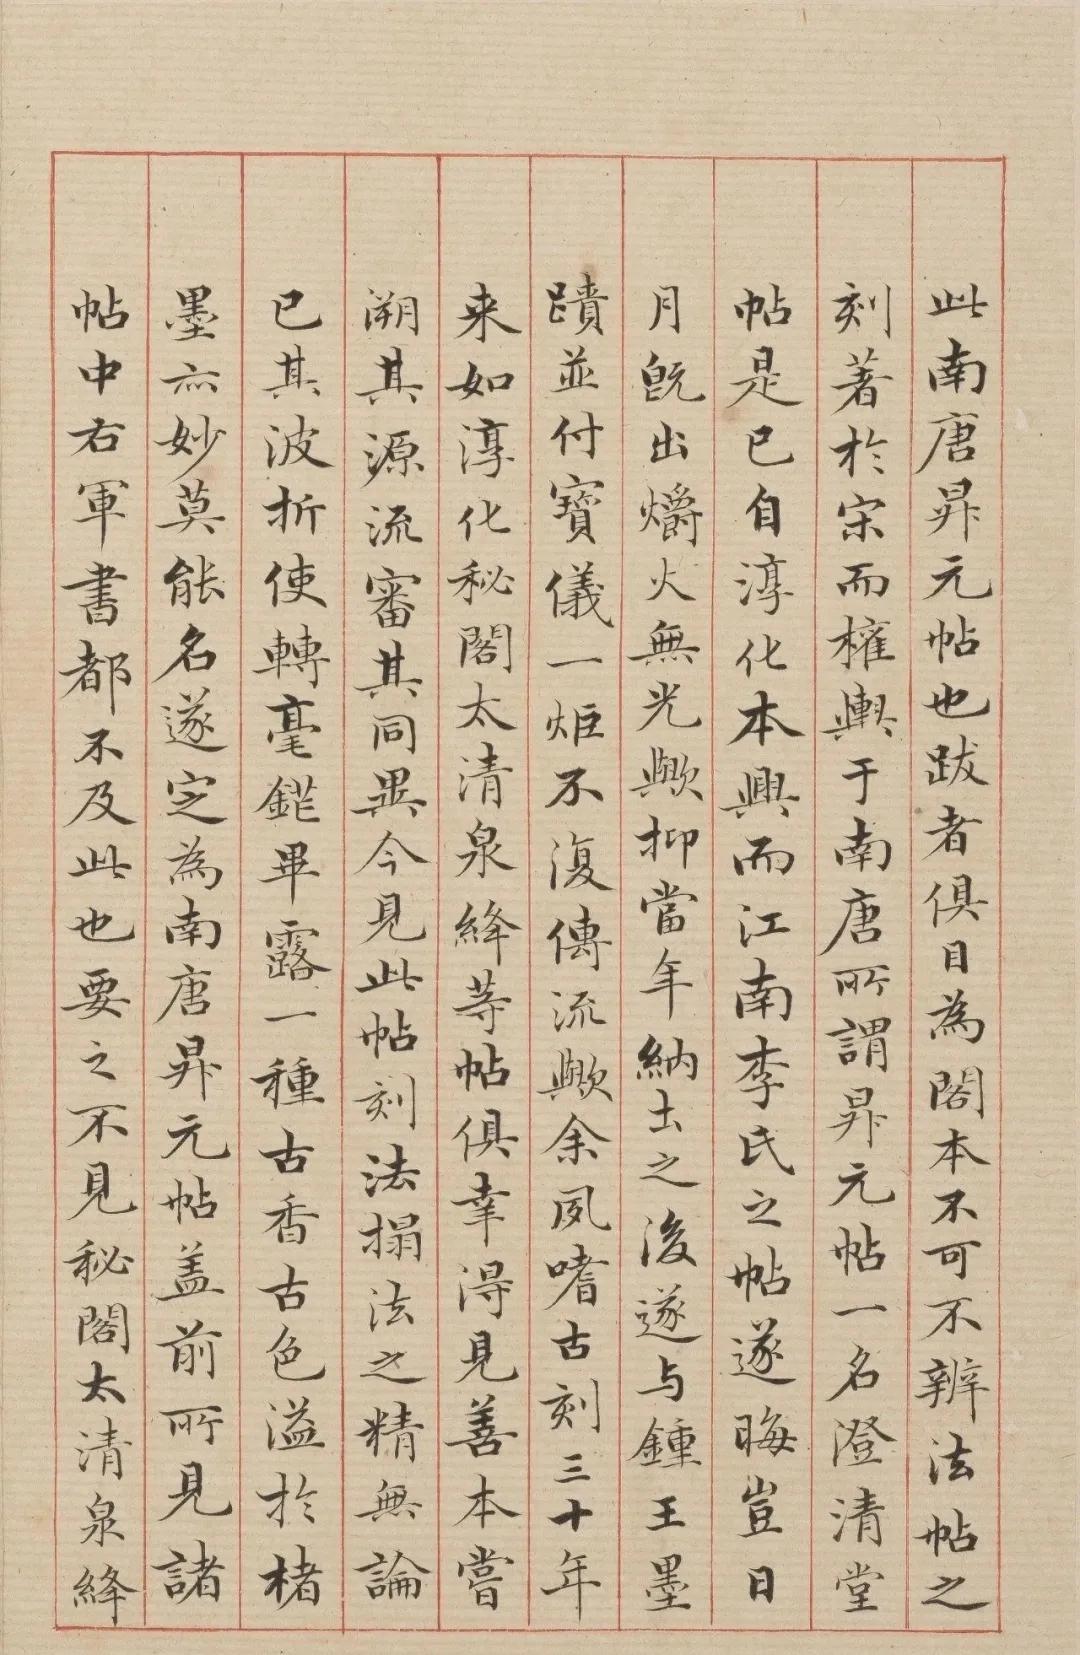 此南唐昇元帖也跋者俱目為閣本不可不辨法帖之
刻著於宋而權輿于南唐所謂昇元帖一名澄清堂
帖是已自淳化本興而江南李氏之帖遂晦豈日
月旣出爝火無光歟抑當年納土之後遂与鍾王墨
蹟並付寶儀一炬不復傳流歟余夙嗜古刻三十年
来如淳化秘閣太清泉絳等帖俱幸得見善本嘗
溯其源流審其同異今見此帖刻法搨法之精無論
已其波折使轉毫鋩畢露一種古香古色溢於楮
墨亦妙莫能名遂定為南唐昇元帖盖前所見諸
帖中右軍書都不及此也要之不見秘閣太清泉絳